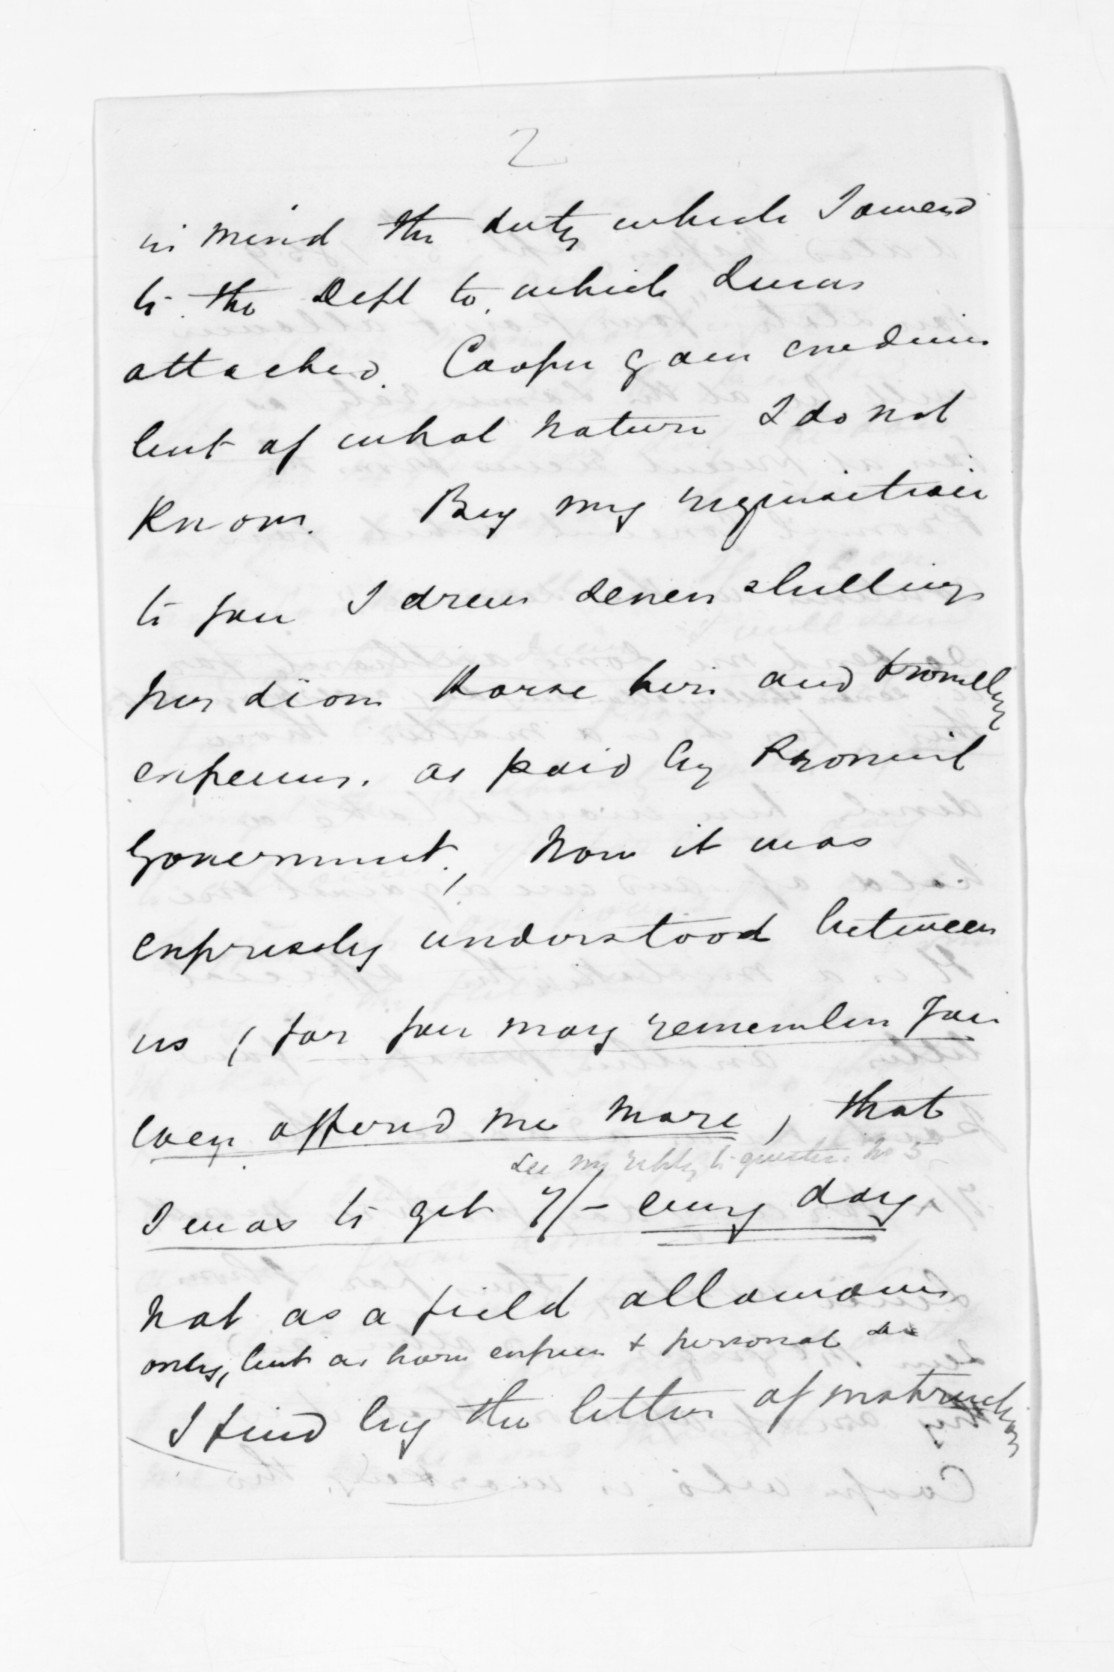 2
in mind the duty which I owed
to the Dept to which I was
attached. Cooper gave evidence
but of what nature I do not
Know. By my requisition
to you I drew seven shillings
per diem Horse hire and travelling
expenses. as paid by Provincial
Government, Now it was
expressly understood between
us, (for you may remember you
even offered me more, that
See my reply to question No 5
I was to get 7/- every day
not as a field allowance
only, but as horse expenses & personal do
I find by the letter of instructions